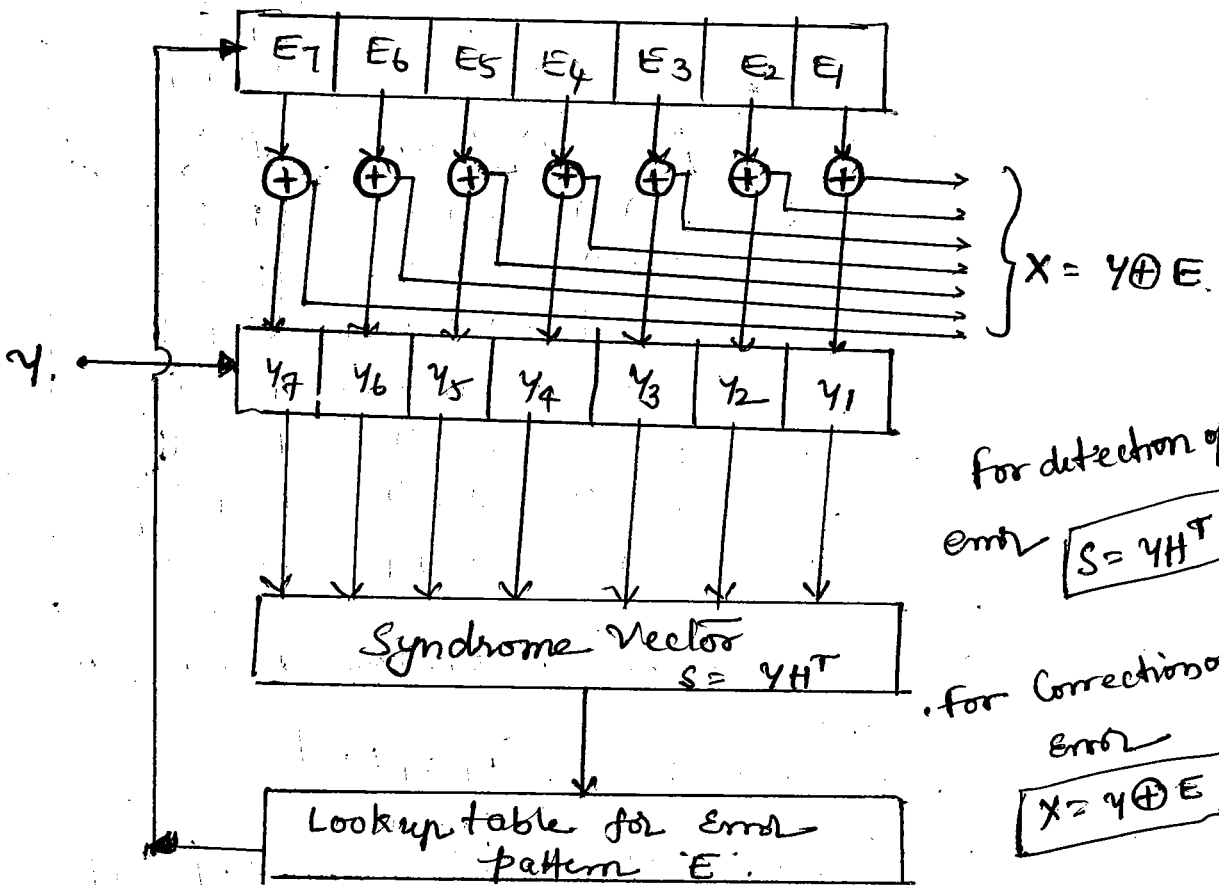 E7 E6 E5 E4 E3 E2 E1
+ + + + + + +
X = Y⊕E.
Y.
Y7 Y6 Y5 Y4 Y3 Y2 Y1
For detection of
error S = YH^T
Syndrome Vector
S = YH^T
. For Correction of
Error
X = Y⊕E
Lookup table for Error
pattern 'E'.